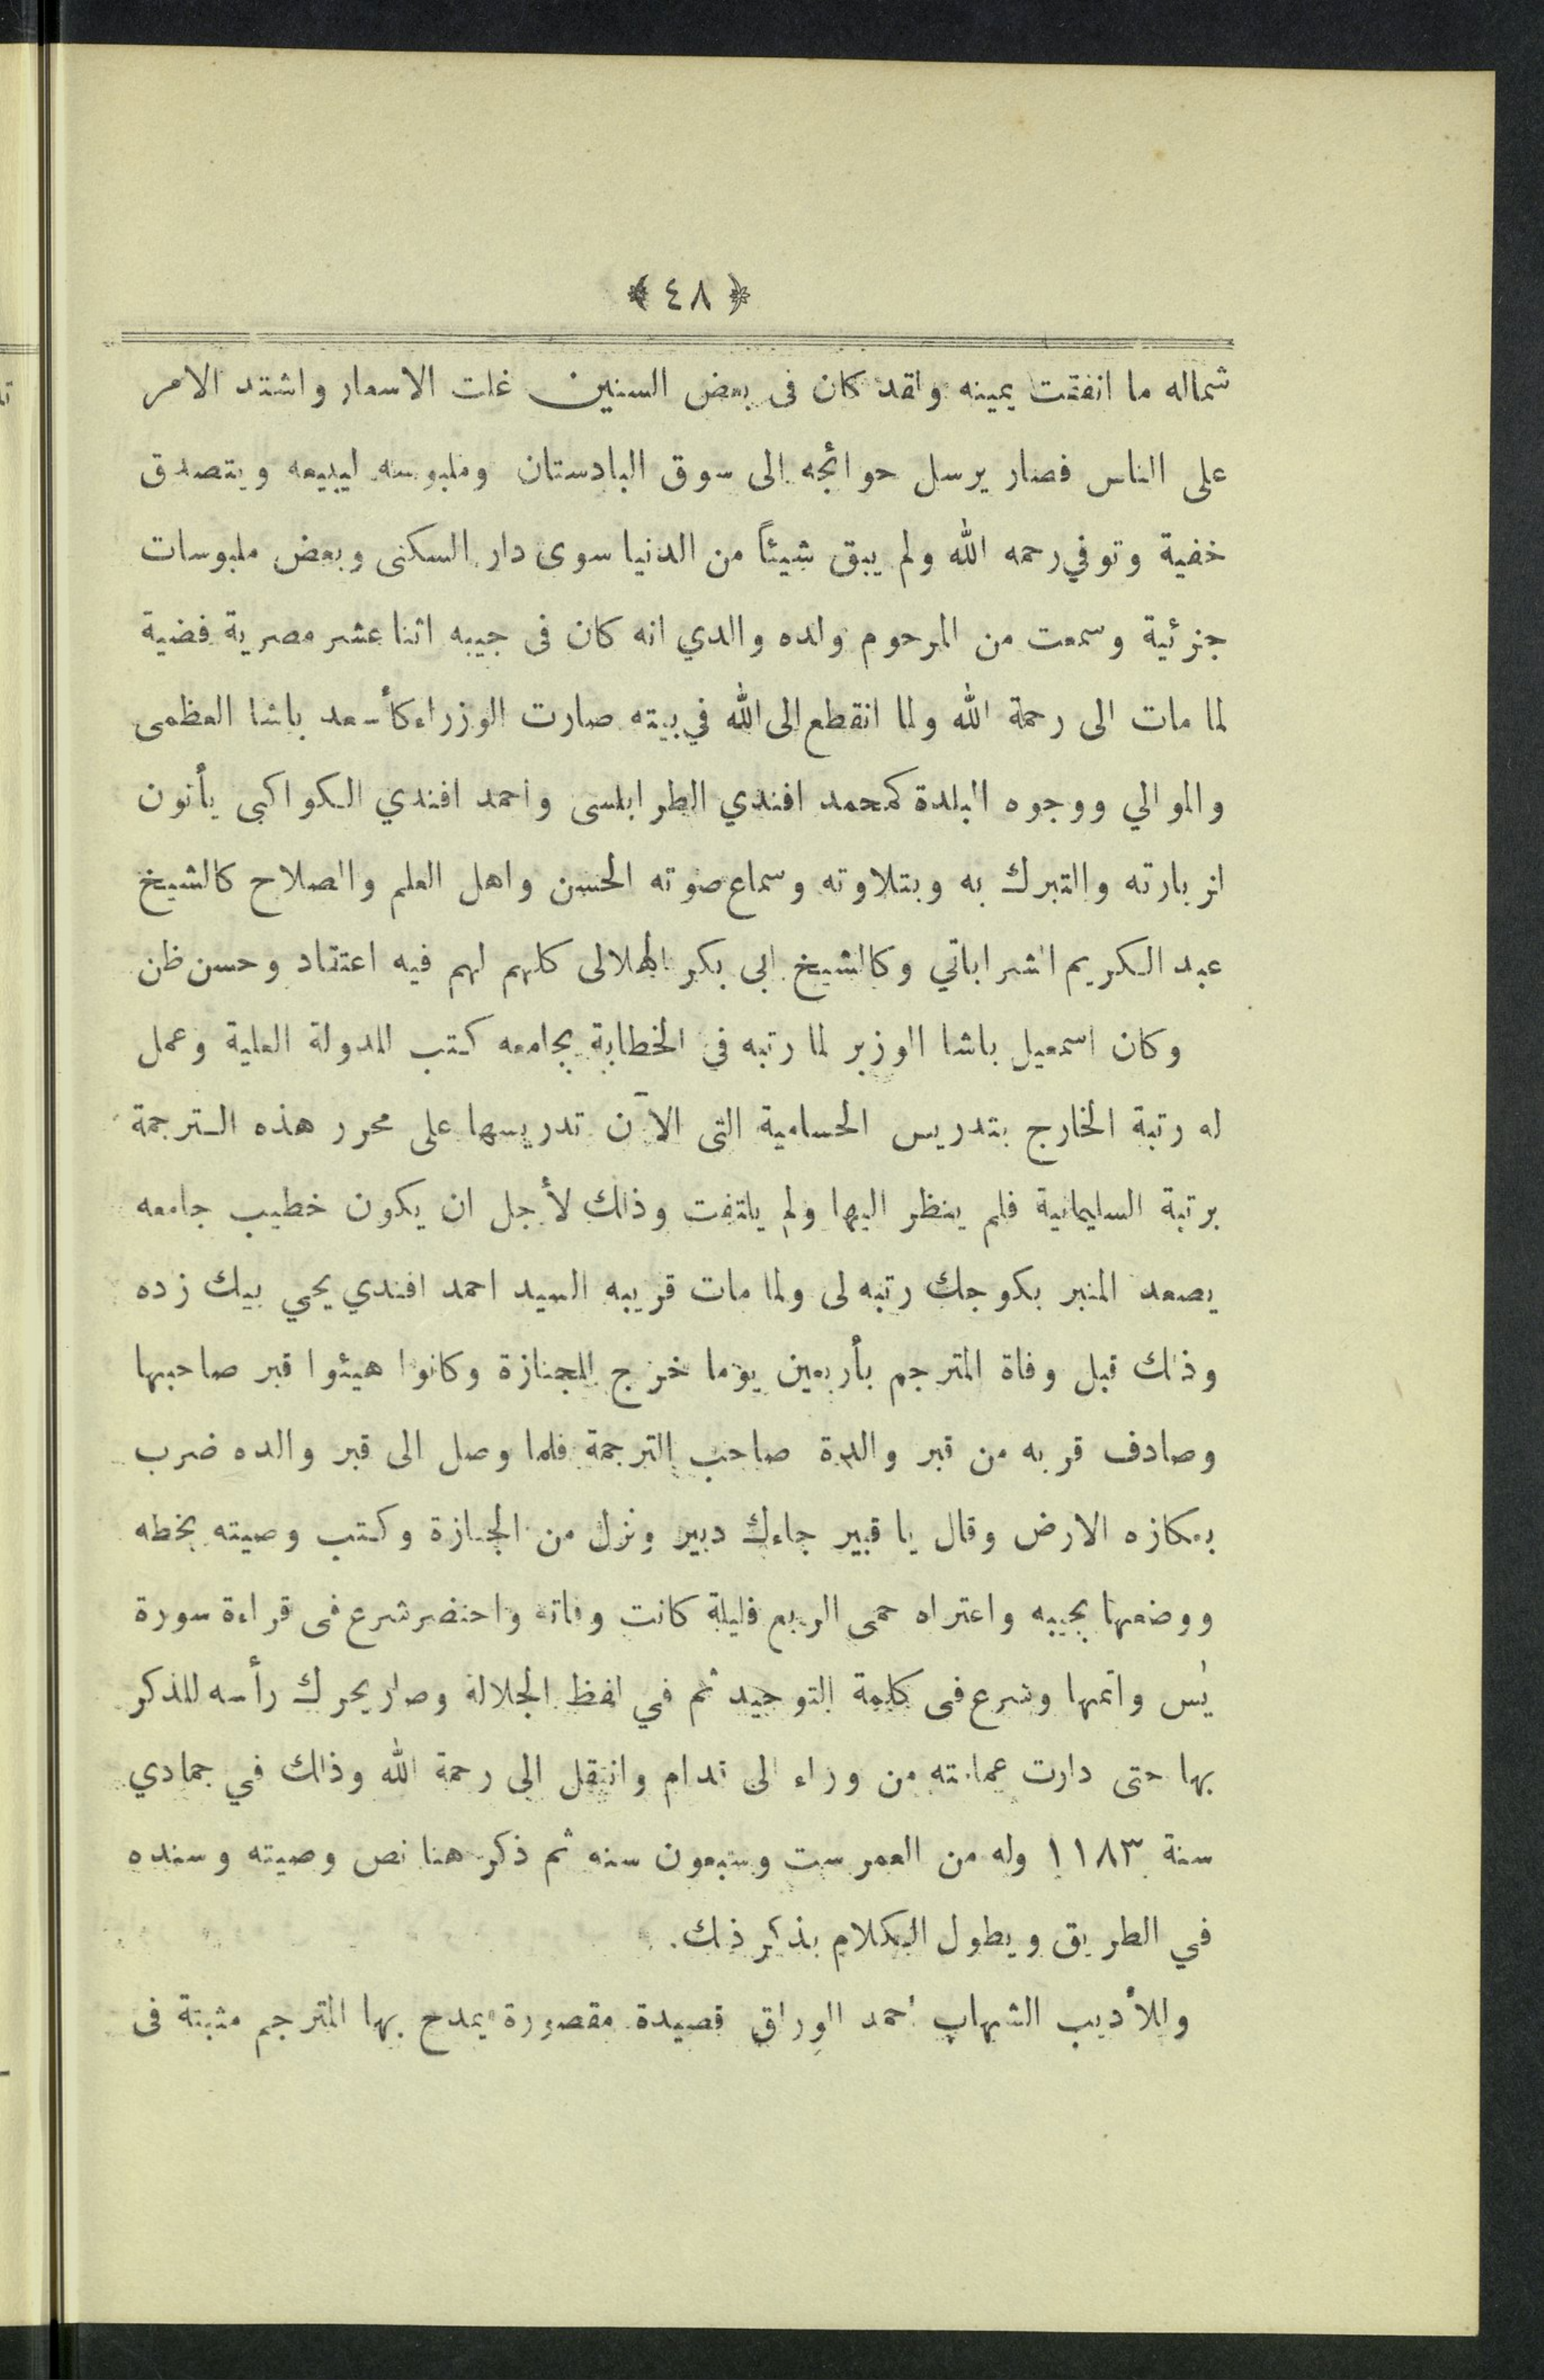 ﴿٤٨﴾
شماله ما انفقت يمينه ولقد كان فى بعض السنين غلت الاسعار واشتد الامر
على الناس فصار يرسل حوائجه الى سوق البادستان وملبوسه ليبيعه ويتصدق
خفية وتوفي رحمه الله ولم يبق شيئاً من الدنيا سوى دار السكنى وبعض ملبوسات
جزئية وسمعت من المرحوم ولده والدي انه كان فى جيبه اثنا عشر مصرية فضية
لما مات الى رحمة الله ولما انقطع الى الله في بيته صارت الوزراء كأسعد باشا العظمى
والموالي ووجوه البلدة كمحمد افندي الطرابلسى واحمد افندي الكواكبى يأتون
لزيارته والتبرك به وبتلاوته وسماع صوته الحسن واهل العلم والصلاح كالشيخ
عبد الكريم الشراباتي وكالشيخ ابى بكر الهلالى كلهم لهم فيه اعتقاد وحسن ظن
وكان اسمعيل باشا الوزير لما رتبه فى الخطابة بجامعه كتب للدولة العلية وعمل
له رتبة الخارج بتدريس الحسامية التى الآن تدريسها على محرر هذه الترجمة
برتبة السليمانية فلم ينظر اليها ولم يلتفت وذلك لأجل ان يكون خطيب جامعه
يصعد المنبر بكوجك رتبه لى ولما مات قريبه السيد احمد افندي يحيي بيك زده
وذلك قبل وفاة المترجم بأربعين يوما خرج للجنازة وكانوا هيئوا قبر صاحبها
وصادف قربه من قبر والدة صاحب الترجمة فلما وصل الى قبر والده ضرب
بعكازه الارض وقال يا قبير جاءك دبير ونزل من الجنازة وكتب وصيته بخطه
ووضعها بجيبه واعتراه حمى الربع فليلة كانت وفاته واحتضر شرع فى قراءة سورة
يٰس واتمها وشرع فى كلمة التوحيد ثم في لفظ الجلالة وصار يحرك رأسه للذكر
بها حتى دارت عمامته من وراء الى قدام وانتقل الى رحمة الله وذلك في جمادي
سنة ١١٨٣ وله من العمر ست وسبعون سنه ثم ذكر هنا نص وصيته وسنده
في الطريق ويطول الكلام بذكر ذلك.
وللأديب الشهاب احمد الوراق قصيدة مقصورة يمدح بها المترجم مثبتة فى